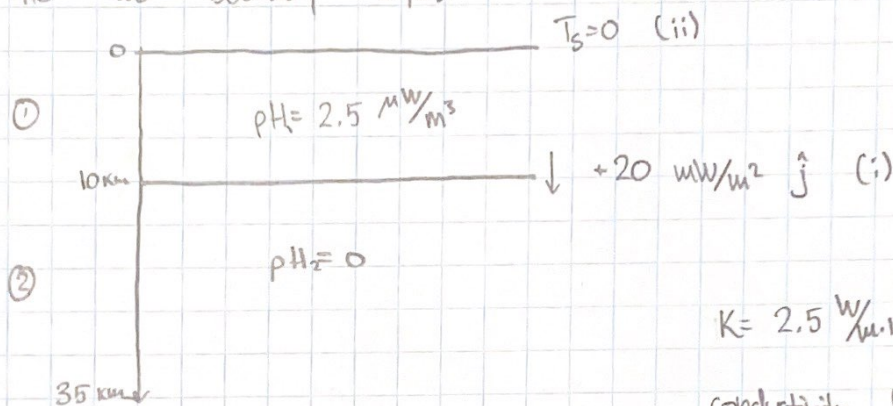 0 T_S=0 (ii)
① ρH₁= 2.5 μW/m³
10 km ↓ +20 mW/m² ĵ (i)
② ρH₂= 0
K= 2.5 W/m.
35 km